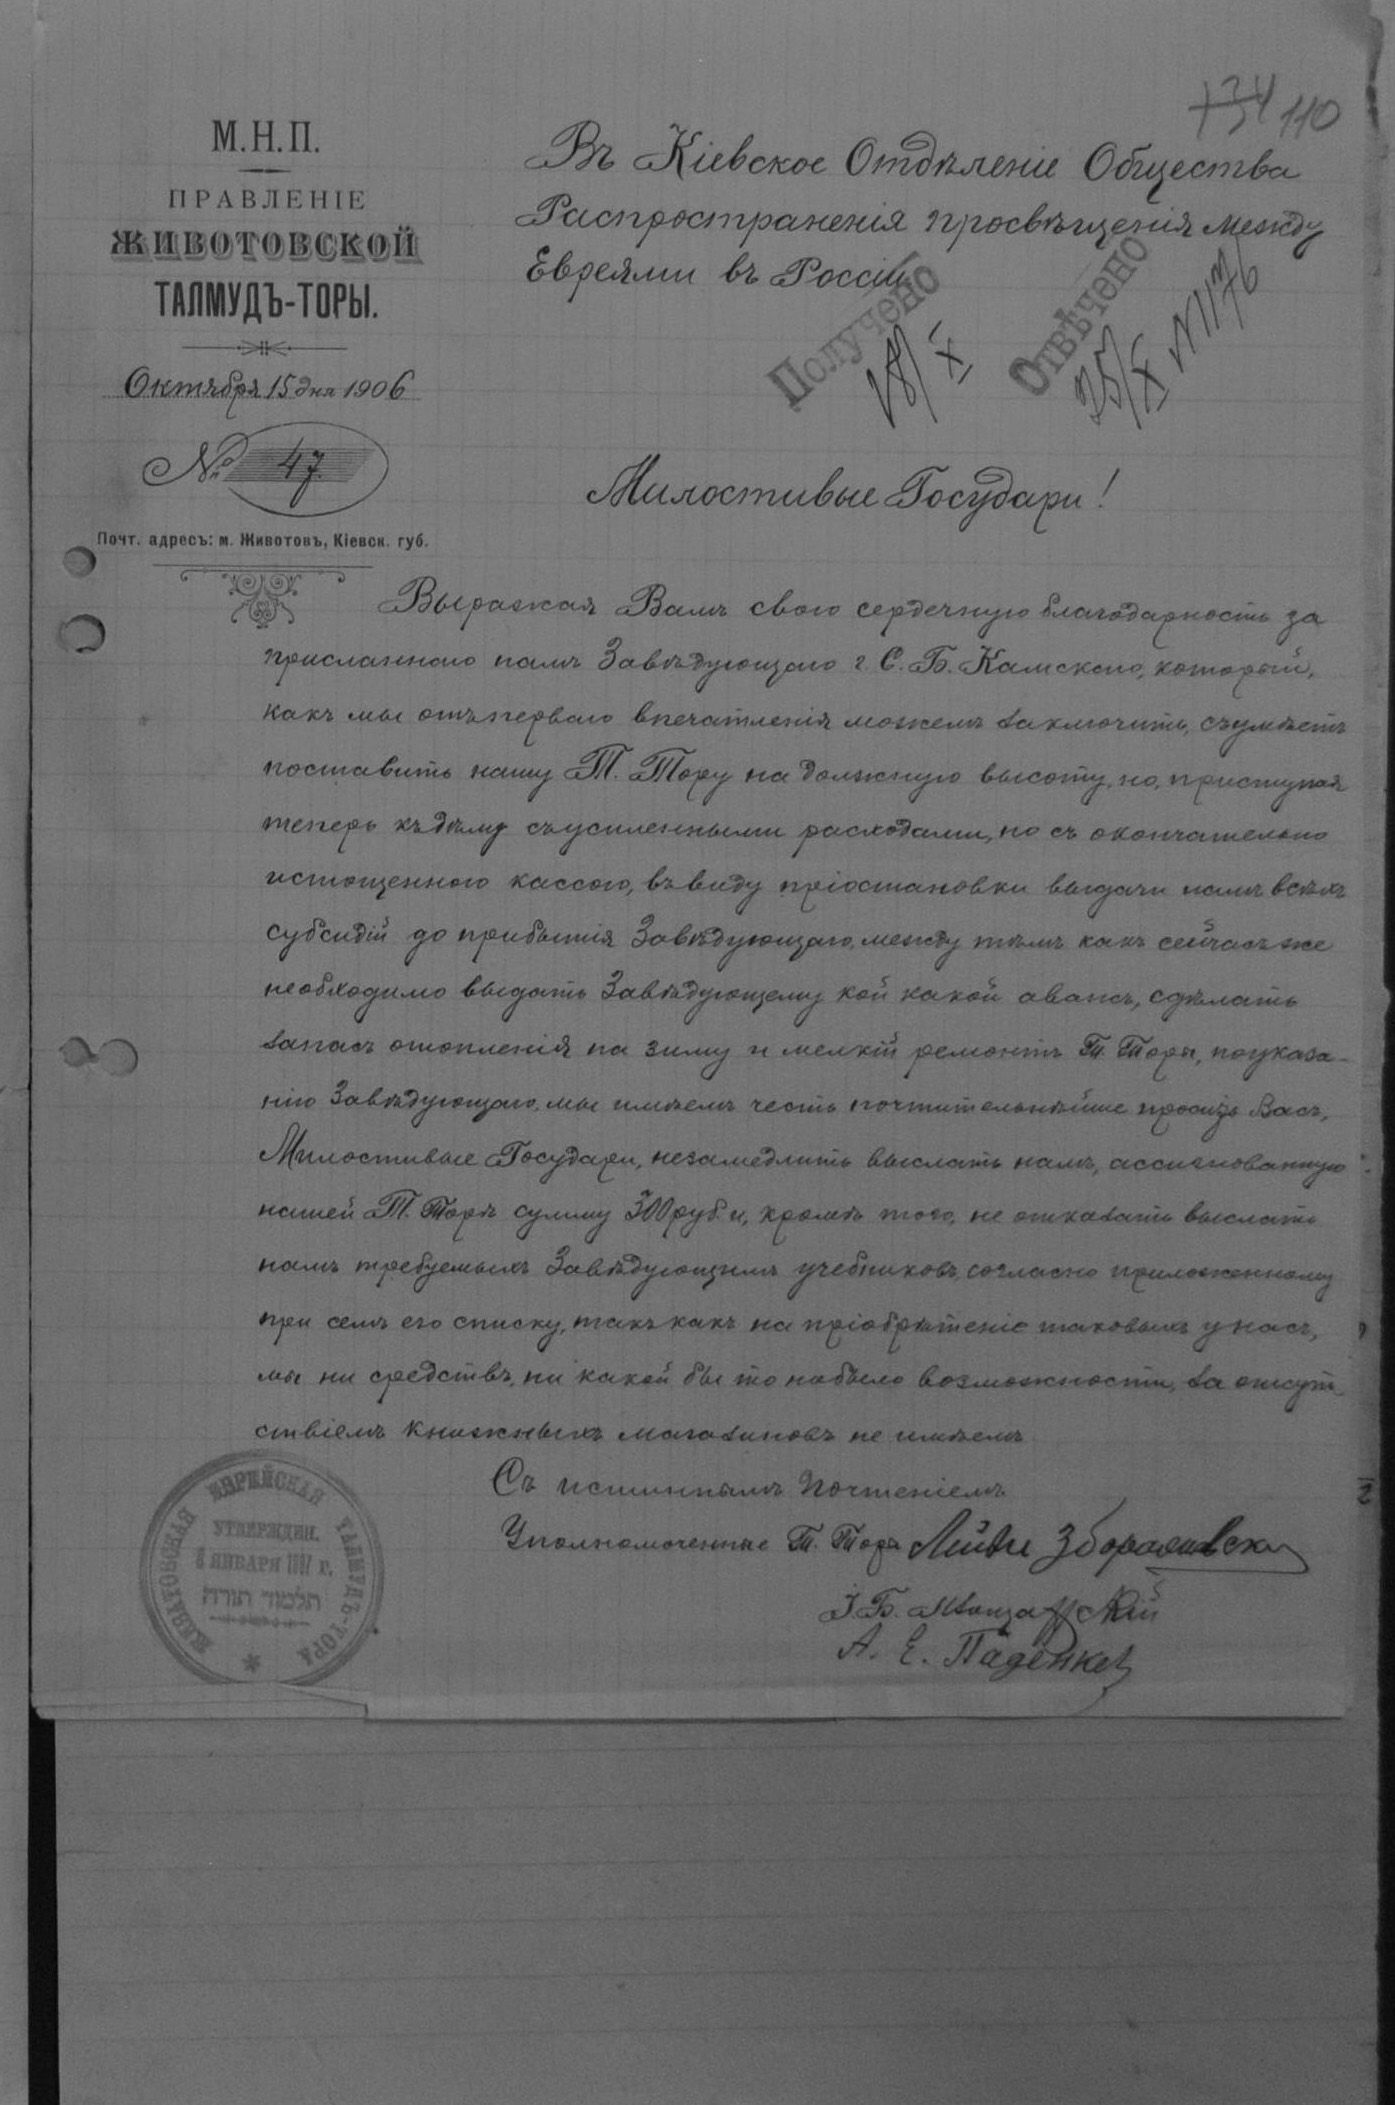 110
М.Н.П.
ПРАВЛЕНІЕ
ЖИВОТОВСКОЙ
ТАЛМУДЪ-ТОРЫ.
Октября 15 дня 1906
№ 47.
Почт. адресъ: м. Животовъ, Кіевск. губ.
Въ Кіевское Отдѣленіе Общества
Распространенія просвѣщенія между
Евреями въ Россіи
Получено
18/X
Отвѣчено
25/X №1176
Милостивые Государи!
Выражая Вамъ свою сердечную благодарность за
присланного намъ Завѣдующаго г. С. Б. Камскаго, который,
какъ мы отъ перваго впечатленія можемъ заключить, съумѣетъ
поставить нашу Т. Тору на должную высоту, но, приступая
теперь къ дѣму съ усиленными расходами, но съ окончательно
истощенною кассою, въ виду пріостановки выдачи намъ всѣхъ
субсидій до прибытія Завѣдующаго, между тѣмъ какъ сейчасъ же
необходимо выдать Завѣдующему кой какой авансъ, сдѣлать
запасъ отопленія на зиму и мелкій ремонтъ Т. Торы, по указа-
нію Завѣдующаго, мы имѣемъ честь почтительнѣйше просить Васъ,
Милостивые Государи, незамедлить выслать намъ, ассигнованную
нашей Т. Торѣ сумму 300 руб. и, кромѣ того, не отказать выслать
намъ требуемыхъ Завѣдующимъ учебниковъ, согласно приложенному
при семъ его списку, такъ какъ на пріобрѣтеніе таковыхъ у насъ,
мы ни средствъ, ни какой бы то небыло возможности, за отсут
ствіемъ книжныхъ магазиновъ не имѣемъ
Съ истиннымъ Почтеніемъ
Уполномоченные Т. Торы Лейви
І. Б.
А. Е.
ЖИВОТОВСКАЯ ЕВРЕЙСКАЯ ТАЛМУДЪ-ТОРА
УТВЕРЖДЕН.
ЯНВАРЯ
תלמוד תורה